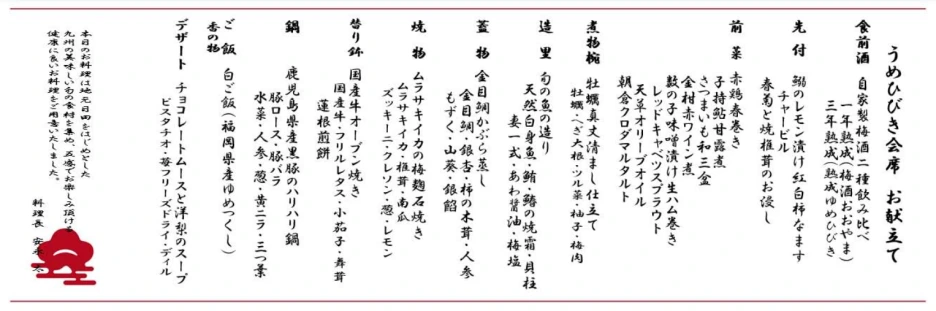 うめひびき会席　お献立て
食前酒　自家製梅酒二種飲み比べ
一年熟成(梅酒おおやま)
三年熟成(熟成ゆめひびき)
先付　鰯のレモン漬け紅白柿なます
チャービル
春菊と焼椎茸のお浸し
前菜　赤鶏春巻き
子持鮎甘露煮
さつまいも和三盆
金柑赤ワイン煮
数の子味噌漬け生ハム巻き
レッドキャベツスプラウト
天草オリーブオイル
朝倉クロダマルタルト
煮物椀　牡蠣真丈清まし仕立て
牡蠣・へぎ大根・ツル菜・柚子・梅肉
造里　旬の魚の造り
天然白身魚・鮪・鰆の焼霜・貝柱
妻一式・あわ醤油・梅塩
蓋物　金目鯛かぶら蒸し
金目鯛・銀杏・柿の木茸・人参
もずく・山葵・銀餡
焼物　ムラサキイカの梅麹石焼き
ムラサキイカ・椎茸・南瓜
ズッキーニ・クレソン・葱・レモン
替り鉢　国産牛オーブン焼き
国産牛・フリルレタス・小茄子・舞茸
蓮根煎餅
鍋　鹿児島県産黒豚のハリハリ鍋
豚ロース・豚バラ
水菜・人参・葱・黄ニラ・三つ葉
ご飯　白ご飯(福岡県産ゆめつくし)
香の物
デザート　チョコレートムースと洋梨のスープ
ピスタチオ・苺フリーズドライ・ディル
本日のお料理は地元日田をはじめとした
九州の美味しい旬の食材を集め、五感でお楽しみ頂ける
健康に良いお料理をご用意いたしました。
料理長　安